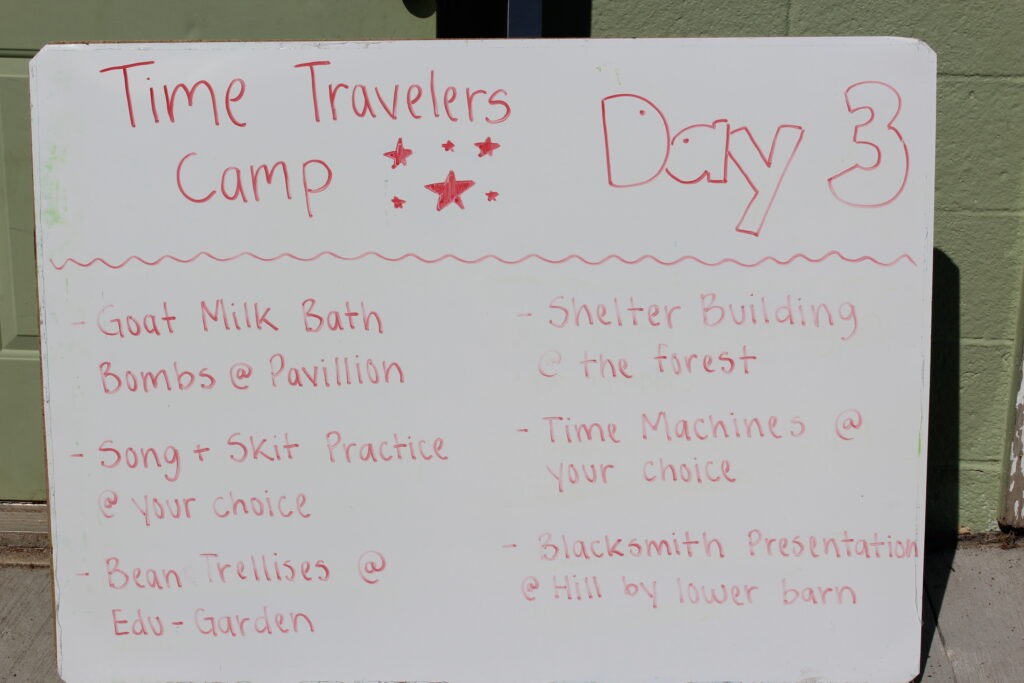 Time Travelers
Camp
Day 3
- Goat Milk Bath
Bombs @ Pavillion
- Song + Skit Practice
@ your choice
- Bean Trellises @
Edu-Garden
- Shelter Building
@ the forest
- Time Machines @
your choice
- Blacksmith Presentation
@ Hill by lower barn